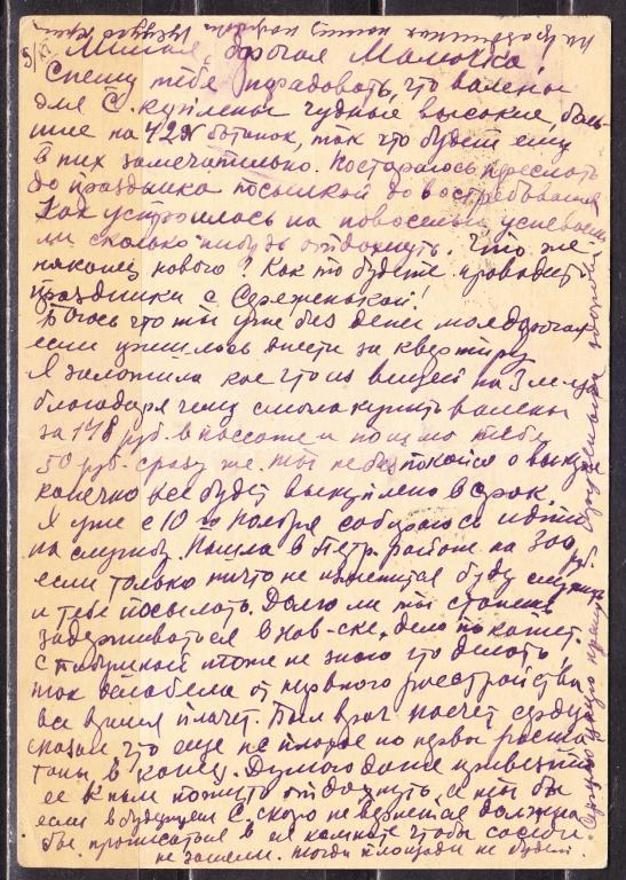 5/XI Милая, дорогая Малючка!
Спешу тебя порадовать, что валены
для С. куплены чудные высокие, боль-
шие на 42 № ботинок, так что будет ему
в них замечательно. Постараюсь переслать
до праздника посылкой до востребования
Как устроилась на новоселье, успеваешь
ли сколько нибудь отдохнуть. Что же
наконец нового? Как то будете проводить
праздники с Сереженькой!
Боюсь что ты уже без денег моя дорогая
если пришлось внести за квартиру
Я заложила кое что из вещей на 3 м-ца
благодаря чему смогла купить валены
за 178 руб. в пассаже и пошлю тебе
50 руб. сразу же. ты не беспокойся о выкупе
конечно все будет выкуплено в срок.
Я уже с 10-го Ноября собираюсь идти
на службу. Нашла в Петр. районе на 300 руб.
если только ничто не изменится буду служить
и тебе посылать. Долго ли ты станешь
задерживаться в Хав-ске, дело покажет.
С бабушкой тоже не знаю что делать,
так ослабела от нервного расстройства
все время плачет. Был врач насчет сердца
сказал что еще не плохое но нервы расша
таны в конец. Думаю даже привезти
ее к нам пожить отдохнуть, а ты бы
если в будущем С. скоро не вернется должна
бы прописаться в ея комнате чтобы соседи
не заняли. тогда площади не будет.